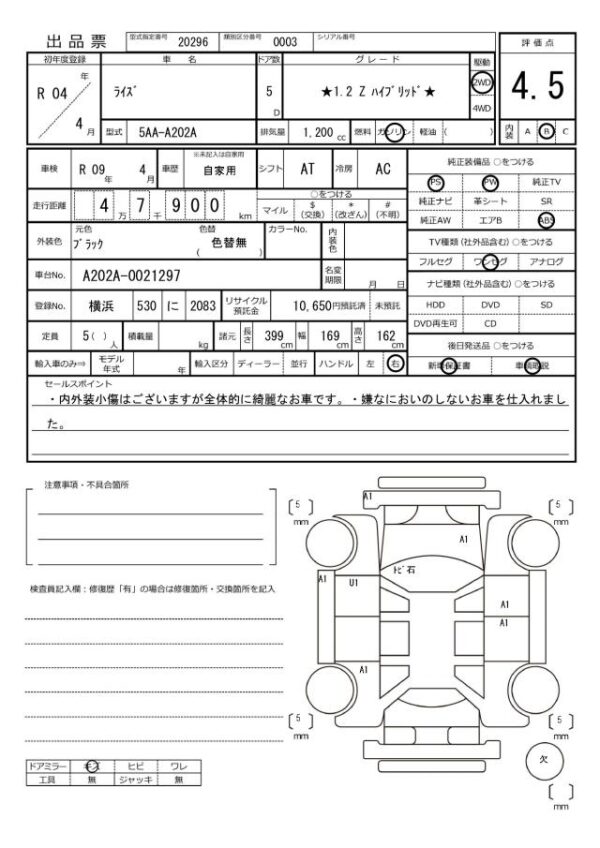 出品票 型式指定番号 20296 類別区分番号 0003 シリアル番号
評価点
4.5
初年度登録 車名 ドア数 グレード 駆動
R 04 年 4 月
ﾗｲｽﾞ
5 D
★1.2 Z ﾊｲﾌﾞﾘｯﾄﾞ★
2WD
4WD
型式 5AA-A202A 排気量 1,200 cc 燃料 ガソリン 軽油 ( )
内装 A B C
車検 R 09 年 4 月 車歴 ※未記入は自家用 自家用 シフト AT 冷房 AC
純正装備品 ○をつける
PS PW 純正TV
純正ナビ 革シート SR
純正AW エアB ABS
走行距離 4 万 7 千 9 0 0 km
○をつける
マイル $ (交換) * (改ざん) # (不明)
外装色 元色 ﾌﾞﾗｯｸ 色替 色替無 ( ) カラーNo. 内装色
TV種類 (社外品含む) ○をつける
フルセグ ワンセグ アナログ
車台No. A202A-0021297 名変期限 月 日
ナビ種類 (社外品含む) ○をつける
HDD DVD SD
DVD再生可 CD
登録No. 横浜 530 に 2083 リサイクル預託金 10,650円預託済 未預託
定員 5( ) 人 積載量 kg 諸元 長さ 399 cm 幅 169 cm 高さ 162 cm
後日発送品 ○をつける
新車保証書 車輌取説
輸入車のみ⇒ モデル年式 年 輸入区分 ディーラー 並行 ハンドル 左 右
セールスポイント
・内外装小傷はございますが全体的に綺麗なお車です。・嫌なにおいのしないお車を仕入れまし
た。
注意事項・不具合箇所
検査員記入欄：修復歴「有」の場合は修復箇所・交換箇所を記入
ドアミラー キズ ヒビ ワレ
工具 無 ジャッキ 無
A1
[ 5 ] mm
[ 5 ] mm
A1
ﾄﾋﾞ石
A1
U1
A1
A1
A1
[ 5 ] mm
[ 5 ] mm
欠
[ ] mm